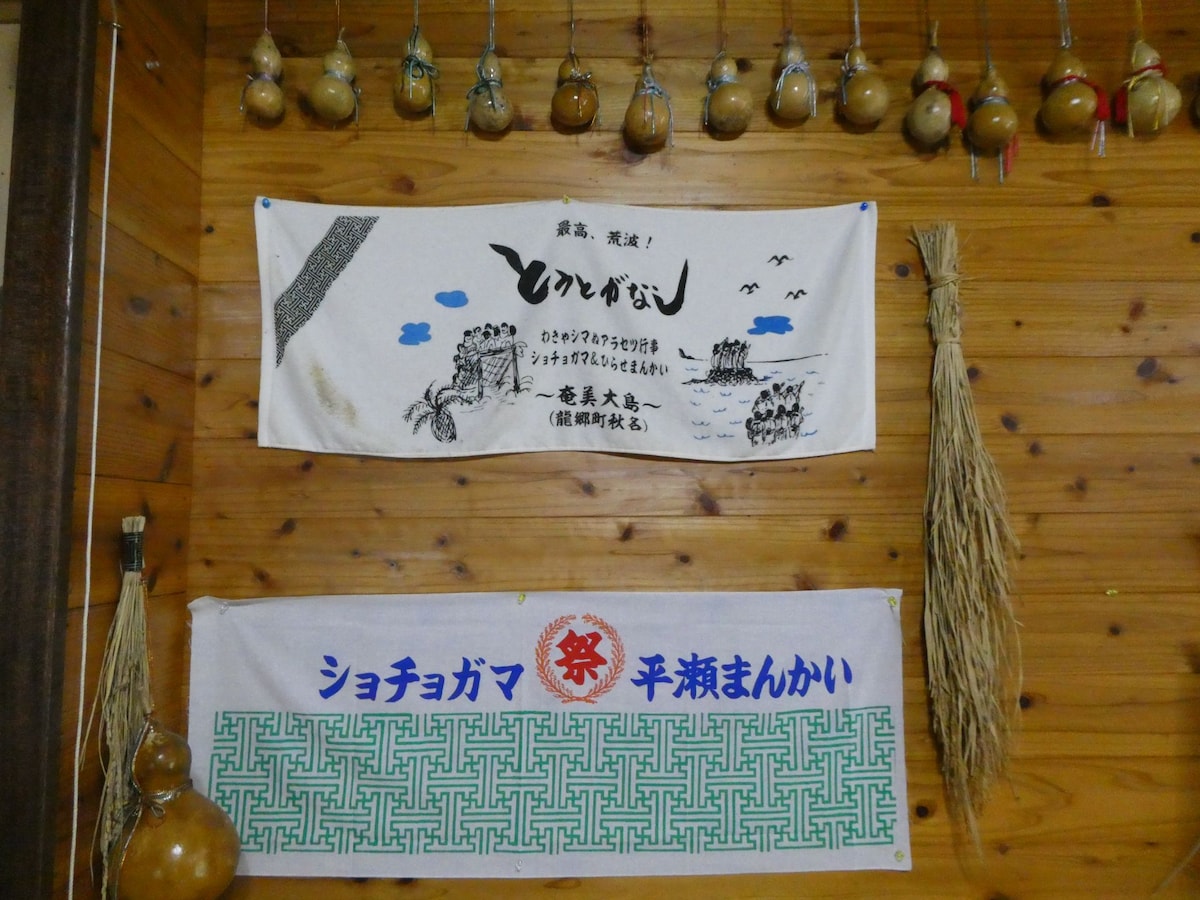 最高、荒波!
とうとがなし
わきゃシマぬアラセツ行事
ショチョガマ&ひらせまんかい
~奄美大島~
(龍郷町秋名)
ショチョガマ 祭 平瀬まんかい